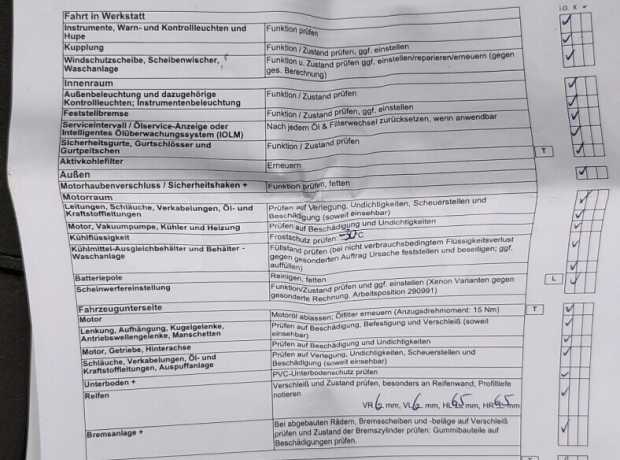 i.O. X ✔
Fahrt in Werkstatt
Instrumente, Warn- und Kontrollleuchten und Hupe Funktion prüfen
Kupplung Funktion / Zustand prüfen, ggf. einstellen
Windschutzscheibe, Scheibenwischer, Waschanlage Funktion u. Zustand prüfen ggf. einstellen/reparieren/erneuern (gegen ges. Berechnung)
Innenraum
Außenbeleuchtung und dazugehörige Kontrollleuchten; Instrumentenbeleuchtung Funktion / Zustand prüfen
Feststellbremse Funktion / Zustand prüfen, ggf. einstellen
Serviceintervall / Ölservice-Anzeige oder Intelligentes Ölüberwachungssystem (IOLM) Nach jedem Öl & Filterwechsel zurücksetzen, wenn anwendbar
Sicherheitsgurte, Gurtschlösser und Gurtpeitschen Funktion / Zustand prüfen T
Aktivkohlefilter Erneuern
Außen
Motorhaubenverschluss / Sicherheitshaken + Funktion prüfen, fetten
Motorraum
Leitungen, Schläuche, Verkabelungen, Öl- und Kraftstoffleitungen Prüfen auf Verlegung, Undichtigkeiten, Scheuerstellen und Beschädigung (soweit einsehbar)
Motor, Vakuumpumpe, Kühler und Heizung Prüfen auf Beschädigung und Undichtigkeiten
Kühlflüssigkeit Frostschutz prüfen -30°C
Kühlmittel-Ausgleichbehälter und Behälter - Waschanlage Füllstand prüfen (bei nicht verbrauchsbedingtem Flüssigkeitsverlust gegen gesonderten Auftrag Ursache feststellen und beseitigen; ggf. auffüllen)
Batteriepole Reinigen, fetten
Scheinwerfereinstellung Funktion/Zustand prüfen und ggf. einstellen (Xenon Varianten gegen gesonderte Rechnung. Arbeitsposition 290991) L
Fahrzeugunterseite
Motor Motoröl ablassen; Ölfilter erneuern (Anzugsdrehmoment: 15 Nm) T
Lenkung, Aufhängung, Kugelgelenke, Antriebswellengelenke, Manschetten Prüfen auf Beschädigung, Befestigung und Verschleiß (soweit einsehbar)
Motor, Getriebe, Hinterachse Prüfen auf Beschädigung und Undichtigkeiten
Schläuche, Verkabelungen, Öl- und Kraftstoffleitungen, Auspuffanlage Prüfen auf Verlegung, Undichtigkeiten, Scheuerstellen und Beschädigung (soweit einsehbar)
Unterboden + PVC-Unterbodenschutz prüfen
Reifen Verschleiß und Zustand prüfen, besonders an Reifenwand, Profiltiefe notieren
VR 6 mm, VL 6 mm, HL 6.5 mm, HR 6.5 mm
Bremsanlage + Bei abgebauten Rädern, Bremsscheiben und -beläge auf Verschleiß prüfen und Zustand der Bremszylinder prüfen: Gummibauteile auf Beschädigungen prüfen.